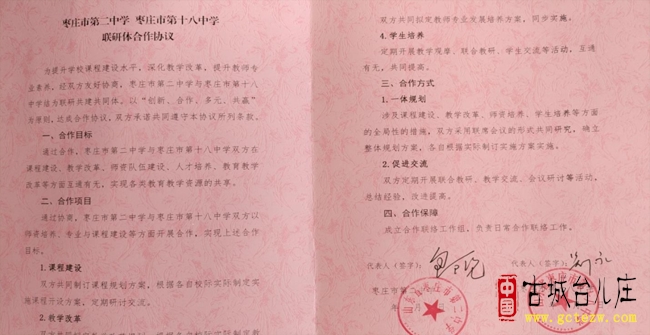 枣庄市第二中学 枣庄市第十八中学
联研体合作协议
为提升学校课程建设水平，深化教学改革，提升教师专
业素养，经双方友好协商，枣庄市第二中学与枣庄市第十八
中学结为联研共建共同体。以“创新、合作、多元、共赢”
为原则，达成合作协议，双方承诺共同遵守本协议所列条款。
一、合作目标
通过合作，枣庄市第二中学与枣庄市第十八中学双方在
课程建设、教学改革、师资队伍建设、人才培养、教育教学
改革等方面互通有无，实现各类教育教学资源的共享。
二、合作项目
通过协商，枣庄市第二中学与枣庄市第十八中学双方以
师资培养、专业与课程建设等方面开展合作，实现上述合作
目标。
1.课程建设
双方共同制订课程规划方案，根据各自校际实际制定实
施课程开设方案，定期研讨交流。
2.教学改革
双方共同拟定教师专业发展培养方案，同步实施。
4.学生培养
定期开展教学观摩、联合教研、学生交流等活动，互通
有无，共同提高。
三、合作方式
1.一体规划
涉及课程建设、教学改革、师资培养、学生培养等方面
的全局性的措施，双方采用联席会议的形式共同研究，确立
整体规划方案，各自根据实际制订实施方案实施。
2.促进交流
双方定期开展联合教研、教学交流、会议研讨等活动，
总结经验，改进提高。
四、合作保障
成立合作联络工作组，负责日常合作联络工作。
代表人（签字）： 代表人（签字）：
枣庄市第二
年 月
中国 古城台儿庄
www.gctezw.com